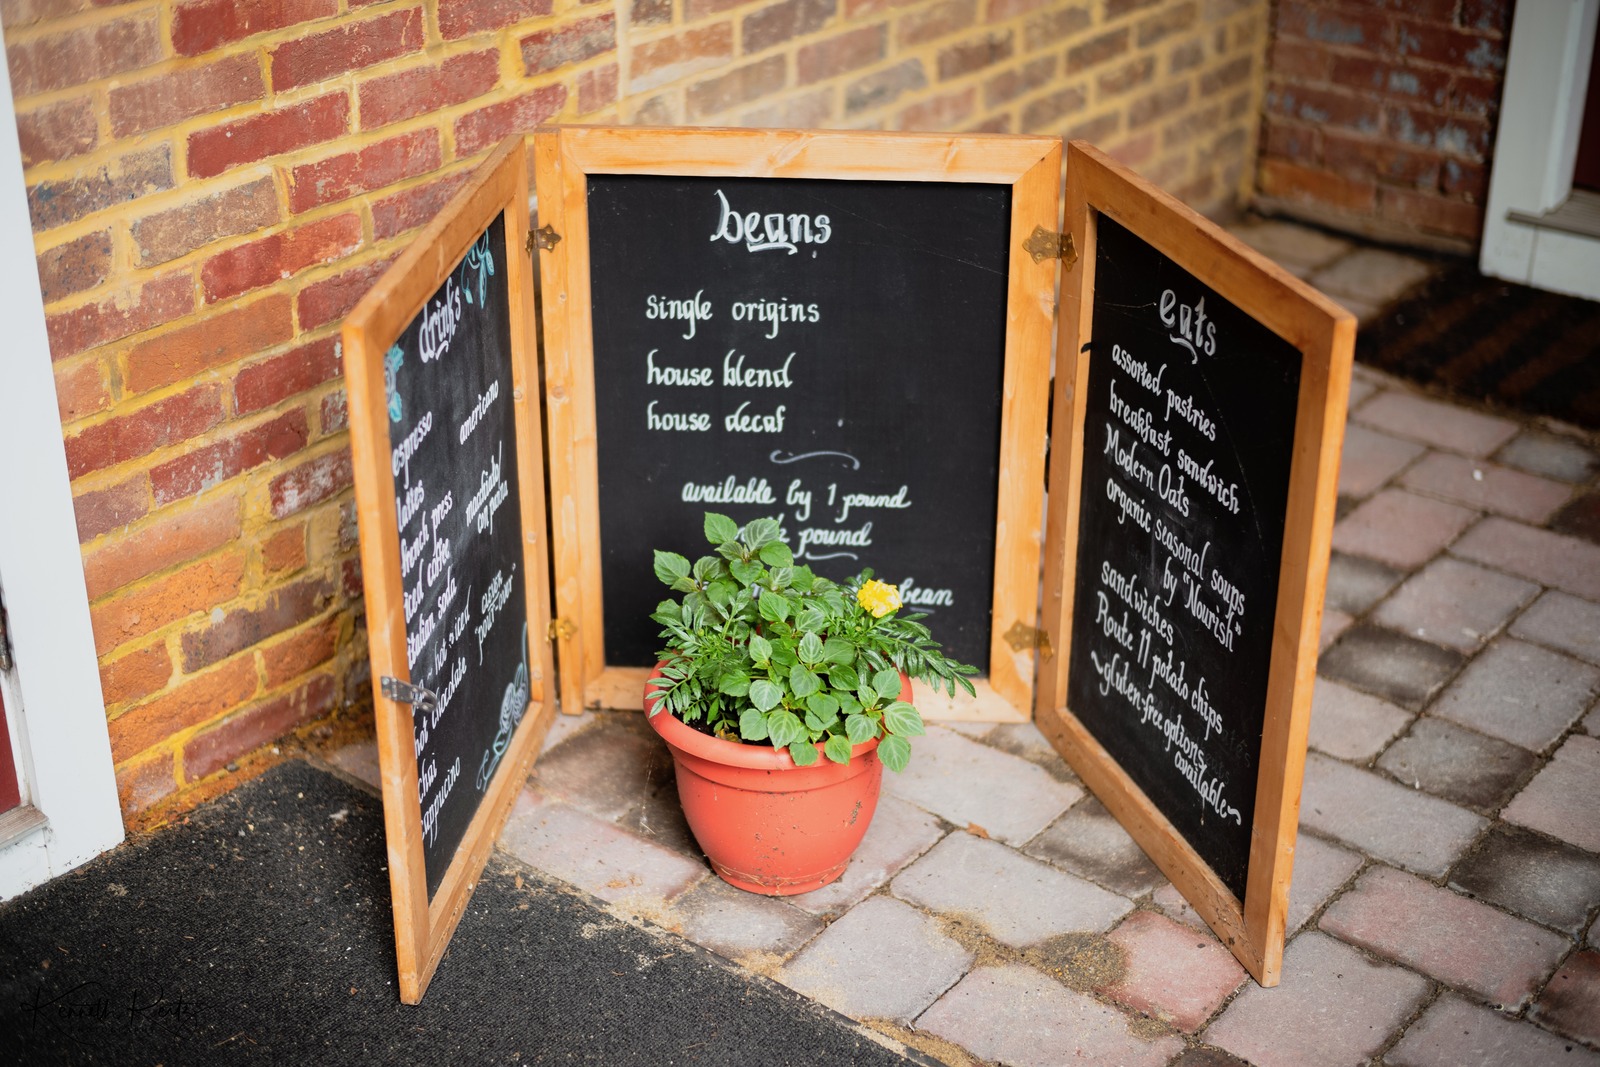 drinks
espresso
americano
lattes
french press
macchiato/
cortado
iced coffee
italian soda
hot & iced
"pour-over"
hot chocolate
chai
cappucino
beans
single origins
house blend
house decaf
available by 1 pound
pound
bean
eats
assorted pastries
breakfast sandwich
Modern Oats
organic seasonal soups
by "Nourish"
sandwiches
Route 11 potato chips
~gluten-free options
available~